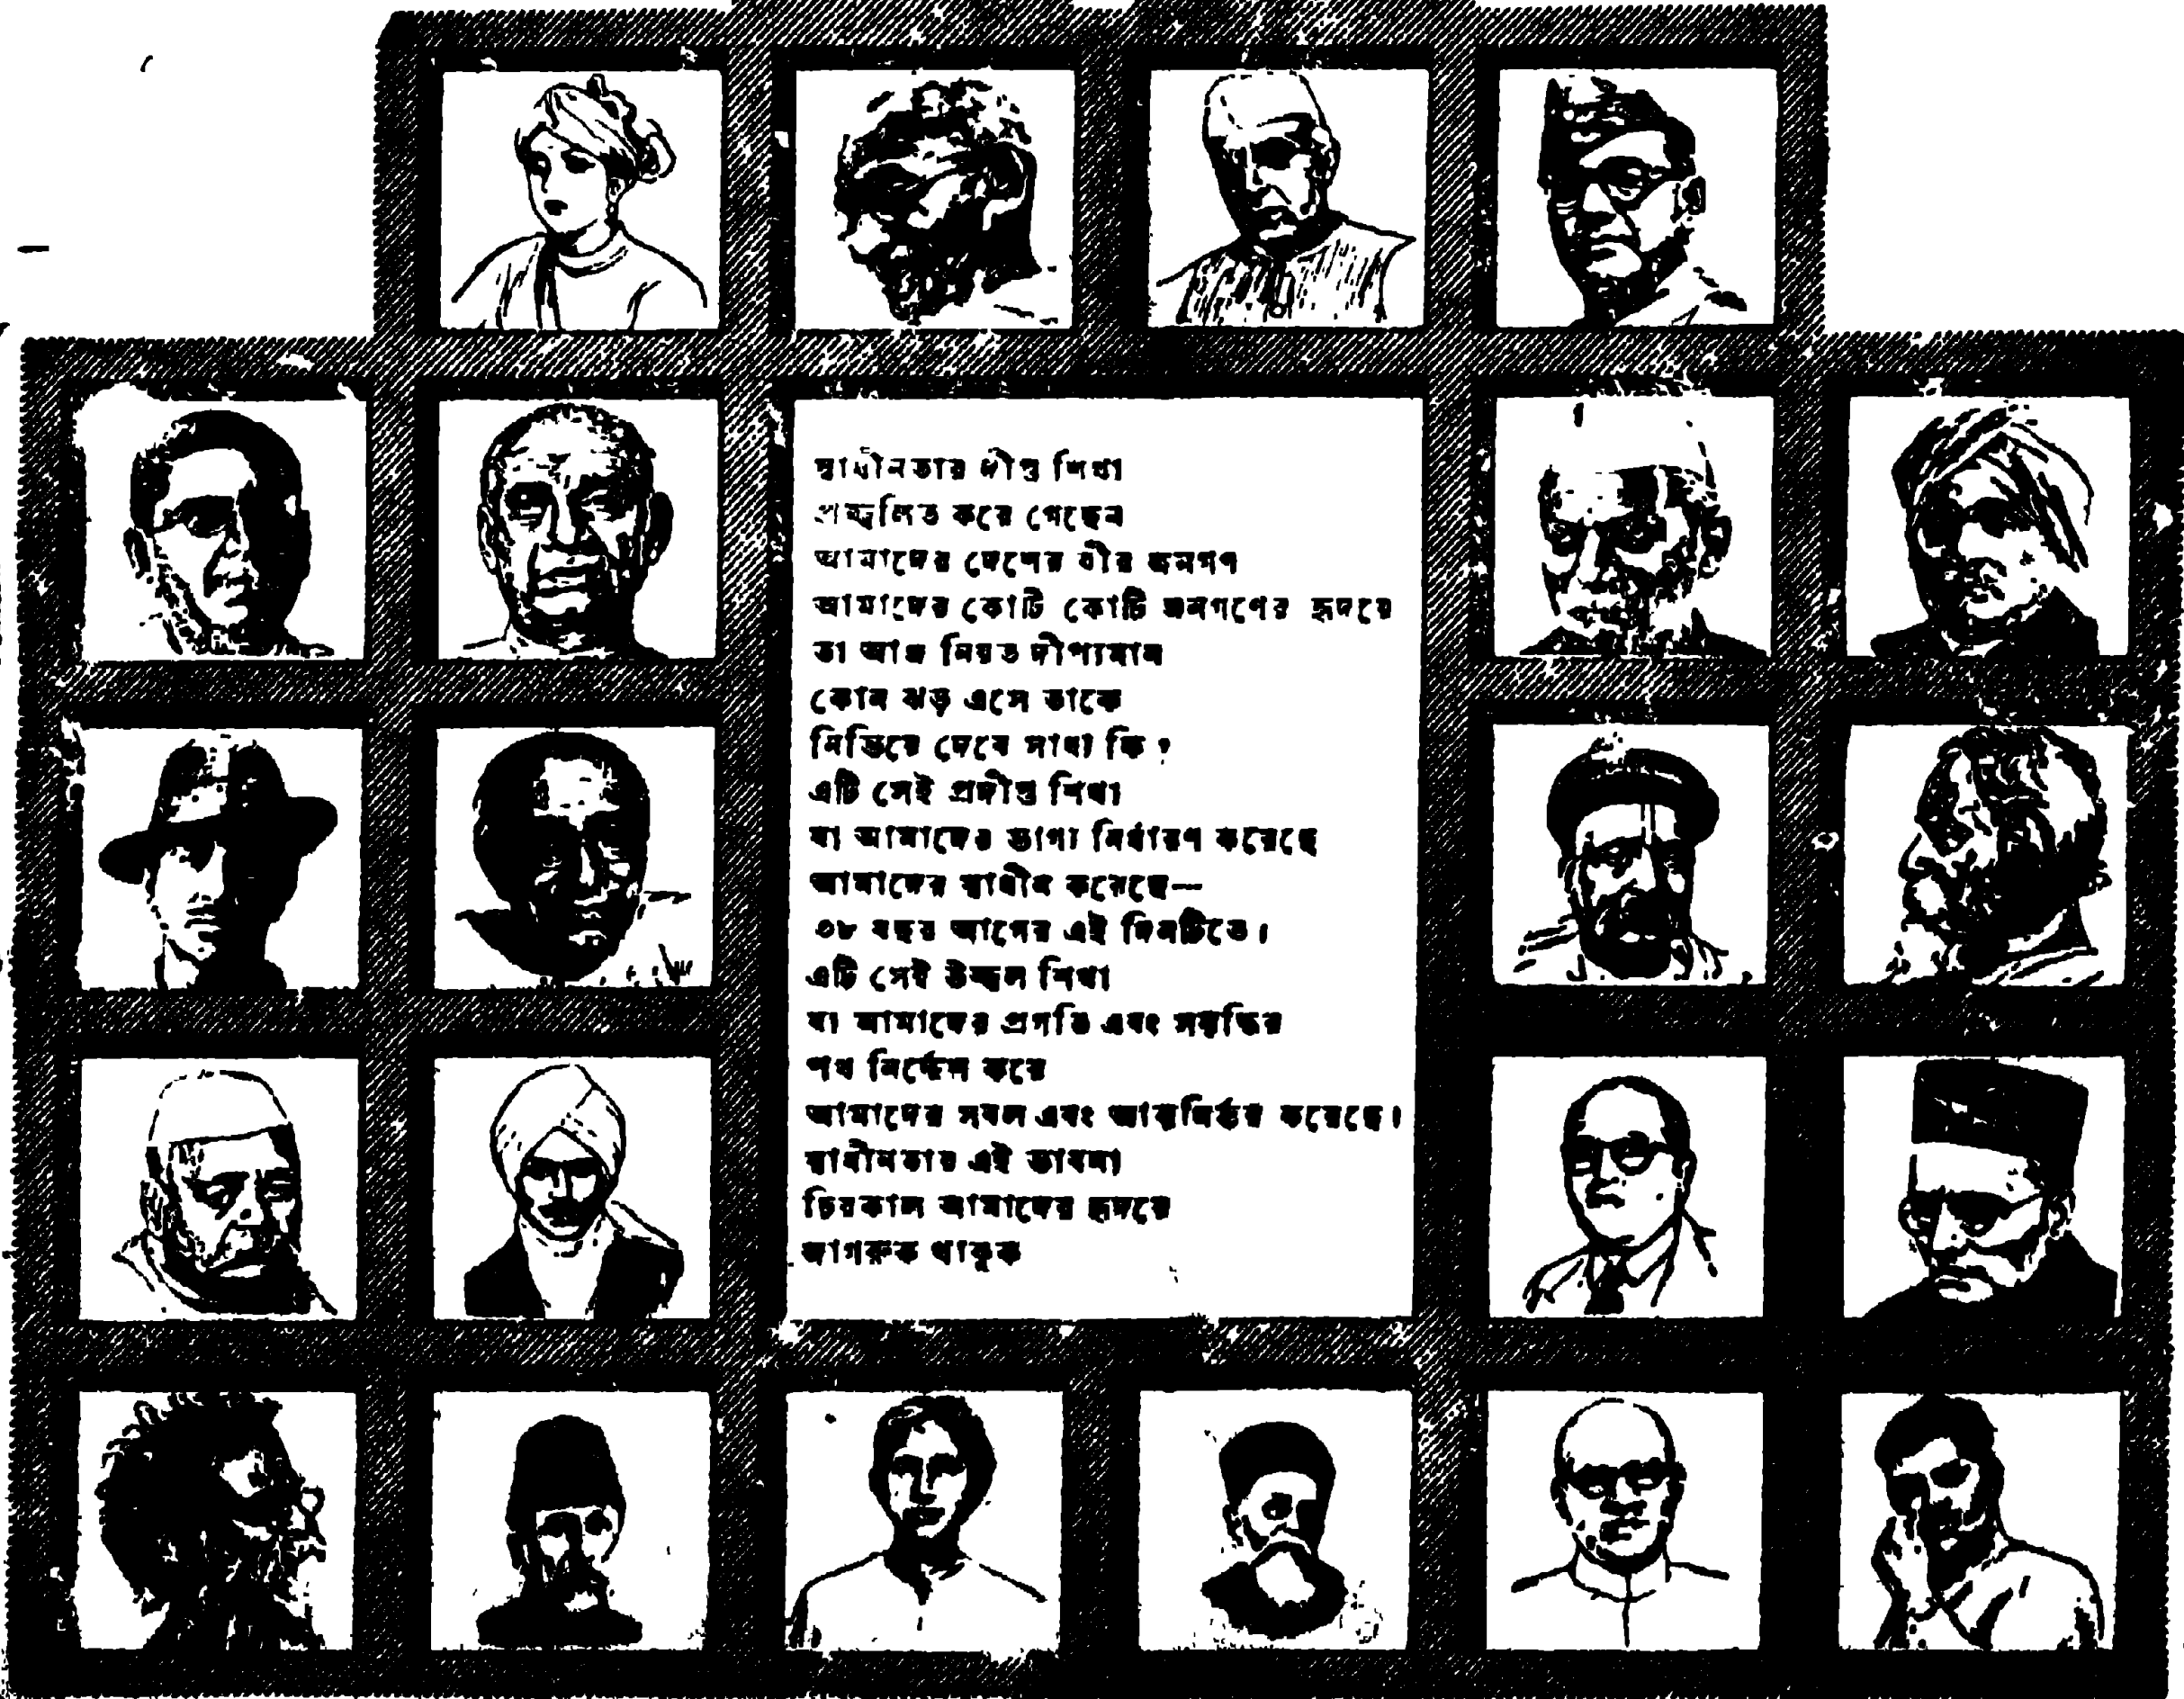 স্বাধীনতার দীপ্ত শিখা
প্রজ্জ্বলিত করে গেছেন
আমাদের দেশের বীর জনগণ
আমাদের কোটি কোটি জনগণের হৃদয়ে
তা আজ নিয়ত দীপ্যমান
কোন ঝড় এসে তাকে
নিভিয়ে দেবে সাধ্য কি ?
এটি সেই প্রদীপ্ত শিখা
যা আমাদের ভাগ্য নির্ধারণ করেছে
আমাদের স্বাধীন করেছে—
৩৮ বছর আগের এই দিনটিতে।
এটি সেই উজ্জ্বল শিখা
যা আমাদের প্রগতি এবং সমৃদ্ধির
পথ নির্দ্দেশ করে
আমাদের সবল এবং আত্মনির্ভর করেছে।
স্বাধীনতার এই ভাবনা
চিরকাল আমাদের হৃদয়ে
জাগরুক থাকুক